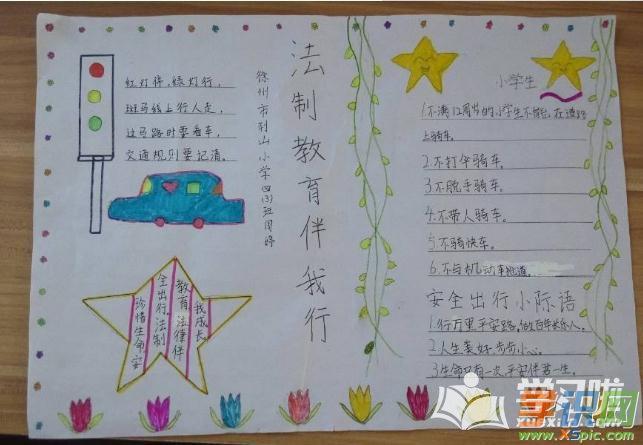 红灯停,绿灯行,
斑马线上行人走,
过马路时要看车,
交通规则要记清。
珍惜生命安
全出行,法制
教育,法律伴
我成长
徐州市荆山小学四(3)班周
法制教育伴我行
小学生
1.不满12周岁的小学生不能在道路
上骑车。
2.不打伞骑车。
3.不脱手骑车。
4.不带人骑车。
5.不骑快车。
6.不与机动车抢道。
安全出行小标语
1.行万里平安路,做百年长乐人。
2.人生美好,步步小心。
3.生命只有一次,平安伴君一生。
学习啦
www.xuexila.com
学识网
www.XSpic.com